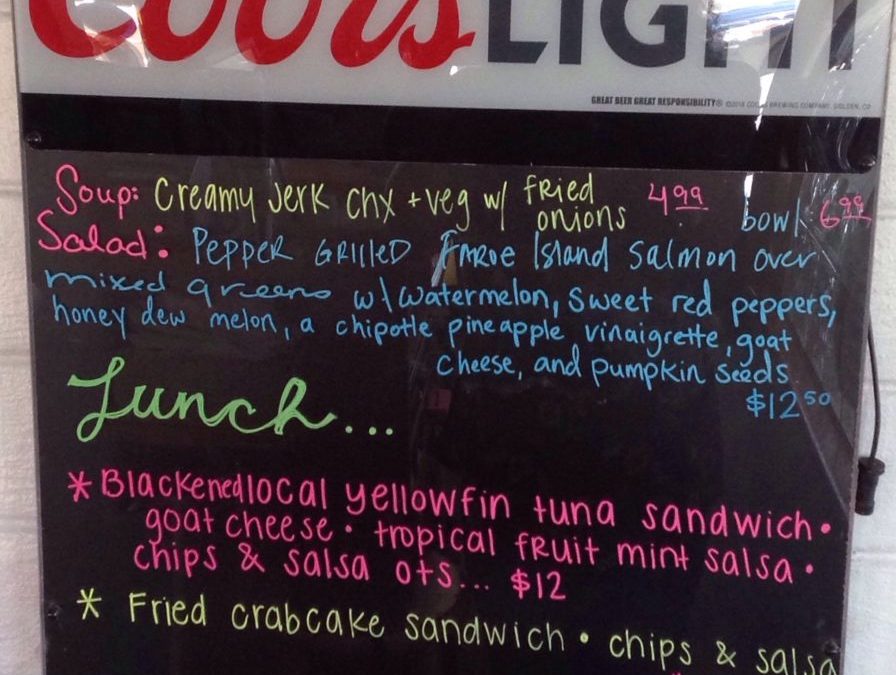 Coors LIGHT
GREAT BEER GREAT RESPONSIBILITY® ©2016 COORS BREWING COMPANY, GOLDEN, CO
Soup: Creamy Jerk chx + veg w/ fried onions 4.99 bowl 6.99
Salad: Pepper Grilled Faroe Island Salmon over
mixed greens w/ watermelon, sweet red peppers,
honey dew melon, a chipotle pineapple vinaigrette, goat
cheese, and pumpkin seeds
$12.50
Lunch...
* Blackened local yellowfin tuna sandwich •
goat cheese • tropical fruit mint salsa •
chips & salsa ots... $12
* Fried crabcake sandwich • chips & salsa